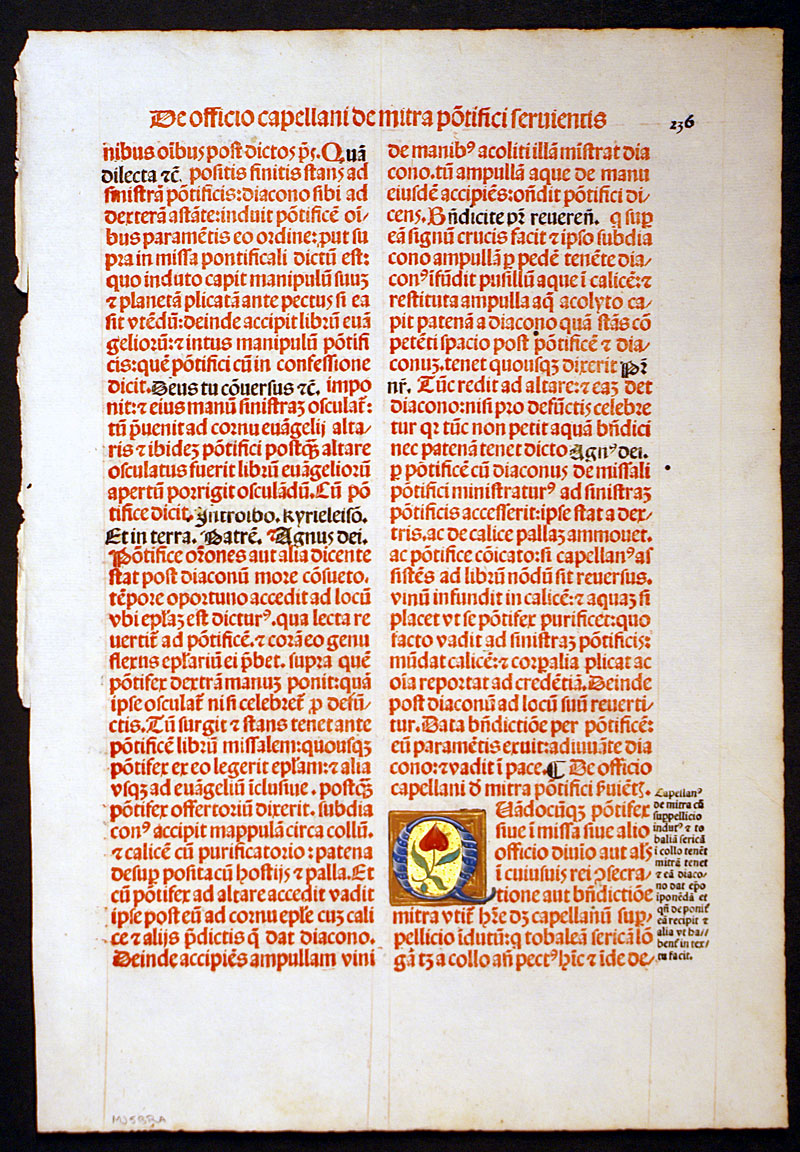 De officio capellani de mitra põtifici seruientis
236
nibus oîbus post dictos p̃s. Quã
dilecta ⁊c̃. positis finitis stans ad
sinistrã põtificis: diacono sibi ad
dexterã astãte: induit põtificẽ oî-
bus paramẽtis eo ordine: put su
pra in missa pontificali dictũ est:
quo induto capit manipulũ suuꝫ
⁊ planetã plicatã ante pectus si ea
sit vtẽdũ: deinde accipit librũ euã
geliorũ: ⁊ intus manipulũ põtifi
cis: quẽ põtifici cũ in confessione
dicit. Deus tu cõuersus ⁊c̃. impo
nit: ⁊ eius manũ sinistraꝫ osculat̃:
tũ p̃uenit ad cornu euãgelij alta-
ris ⁊ ibideꝫ põtifici postꝗ̃ altare
osculatus fuerit librũ euãgeliorũ
apertũ porrigit osculãdũ. Cũ põ
tifice dicit. Introibo. kyrieleisõ.
Et in terra. Patrẽ. ⁊ Agnus dei.
Põtifice orõnes aut alia dicente
stat post diaconũ more cõsueto.
tẽpore oportuno accedit ad locũ
vbi eplãꝫ est dicturꝰ. qua lecta re
uertit̃ ad põtificẽ. ⁊ corã eo genu
flexus eplariũ ei p̃bet. supra quẽ
põtifex dextrã manuꝫ ponit: quã
ipse osculat̃ nisi celebret̃ ꝓ defũ-
ctis. Tũ surgit ⁊ stans tenet ante
põtificẽ librũ missalem: quousqꝫ
põtifex ex eo legerit eplam: ⁊ alia
vsqꝫ ad euangeliũ iclusiue. postqꝫ
põtifex offertoriũ dixerit. subdia
conꝰ accipit mappulã circa collũ.
⁊ calicẽ cũ purificatorio: patena
desup̱ posita cũ hostijs ⁊ palla. Et
cũ põtifex ad altare accedit vadit
ipse post eũ ad cornu eplẽ cuꝫ cali
ce ⁊ alijs p̃dictis q̃ dat diacono.
Deinde accipiẽs ampullam vini
de manibꝰ acoliti illã mĩstrat dia
cono. tũ ampullã aque de manu
eiusdẽ accipiẽs: oñdit põtifici di-
cens. Bñdicite pr̃ reuereñ. q sup̱
eã signũ crucis facit ⁊ ipso subdia
cono ampullã ꝑ pedẽ tenẽte dia-
conꝰ ifũdit pusillũ aque ĩ calicẽ: ⁊
restituta ampulla aq̃ acolyto ca-
pit patenã a diacono quã stãs cõ
petẽti spacio post põtificẽ ⁊ dia-
conuꝫ. tenet quousqꝫ dixerit Pr̃
nr̃. Tũc redit ad altare: ⁊ eaꝫ det
diacono: nisi pro defũctis celebre
tur qr tũc non petit aquã bñdici
nec patenã tenet dicto Agnꝰ dei.
ꝑ põtificẽ cũ diaconus de missali
põtifici ministraturꝰ ad sinistraꝫ
põtificis accesserit: ipse stat a dex-
tris. ac de calice pallaꝫ ammouet.
ac põtifice cõicato: si capellanꝰ as
sistẽs ad librũ nõdũ sit reuersus.
vinũ infundit in calicẽ: ⁊ aquaꝫ si
placet vt se põtifex purificet: quo
facto vadit ad sinistraꝫ põtificis:
mũdat calicẽ: ⁊ corpalia plicat ac
oĩa reportat ad credẽtiã. Deinde
post diaconũ ad locũ suũ reuerti-
tur. Data bñdictiõe per põtificẽ:
eũ paramẽtis exuit: adiuuãte dia
cono: ⁊ vadit ĩ pace. ¶ De officio
capellani d̃ mitra põtifici ẜuiẽtꝭ.
Quãdocũqꝫ põtifex
siue ĩ missa siue alio
officio diuĩo aut alꝭ
ĩ cuiusuis rei ꝯsecra-
tione aut bñdictiõe
mitra vtit̃ hr̃e dꝫ capellanũ sup̱-
pellicio ĩdutũ: q tobaleã sericã lõ
gã tꝫ a collo añ pectꝰ hr̃e ⁊ ĩde de-
Capellanꝰ
de mitra cũ
suppellicio
indutꝰ ⁊ to
baliã sericã
i collo tenẽt
mitrã tenet
⁊ eã diaco-
no dat epo
iponẽdã et
qñ deponit̃
eã recipit ⁊
alia vt ha//
bent̃ in tex/
tu facit.